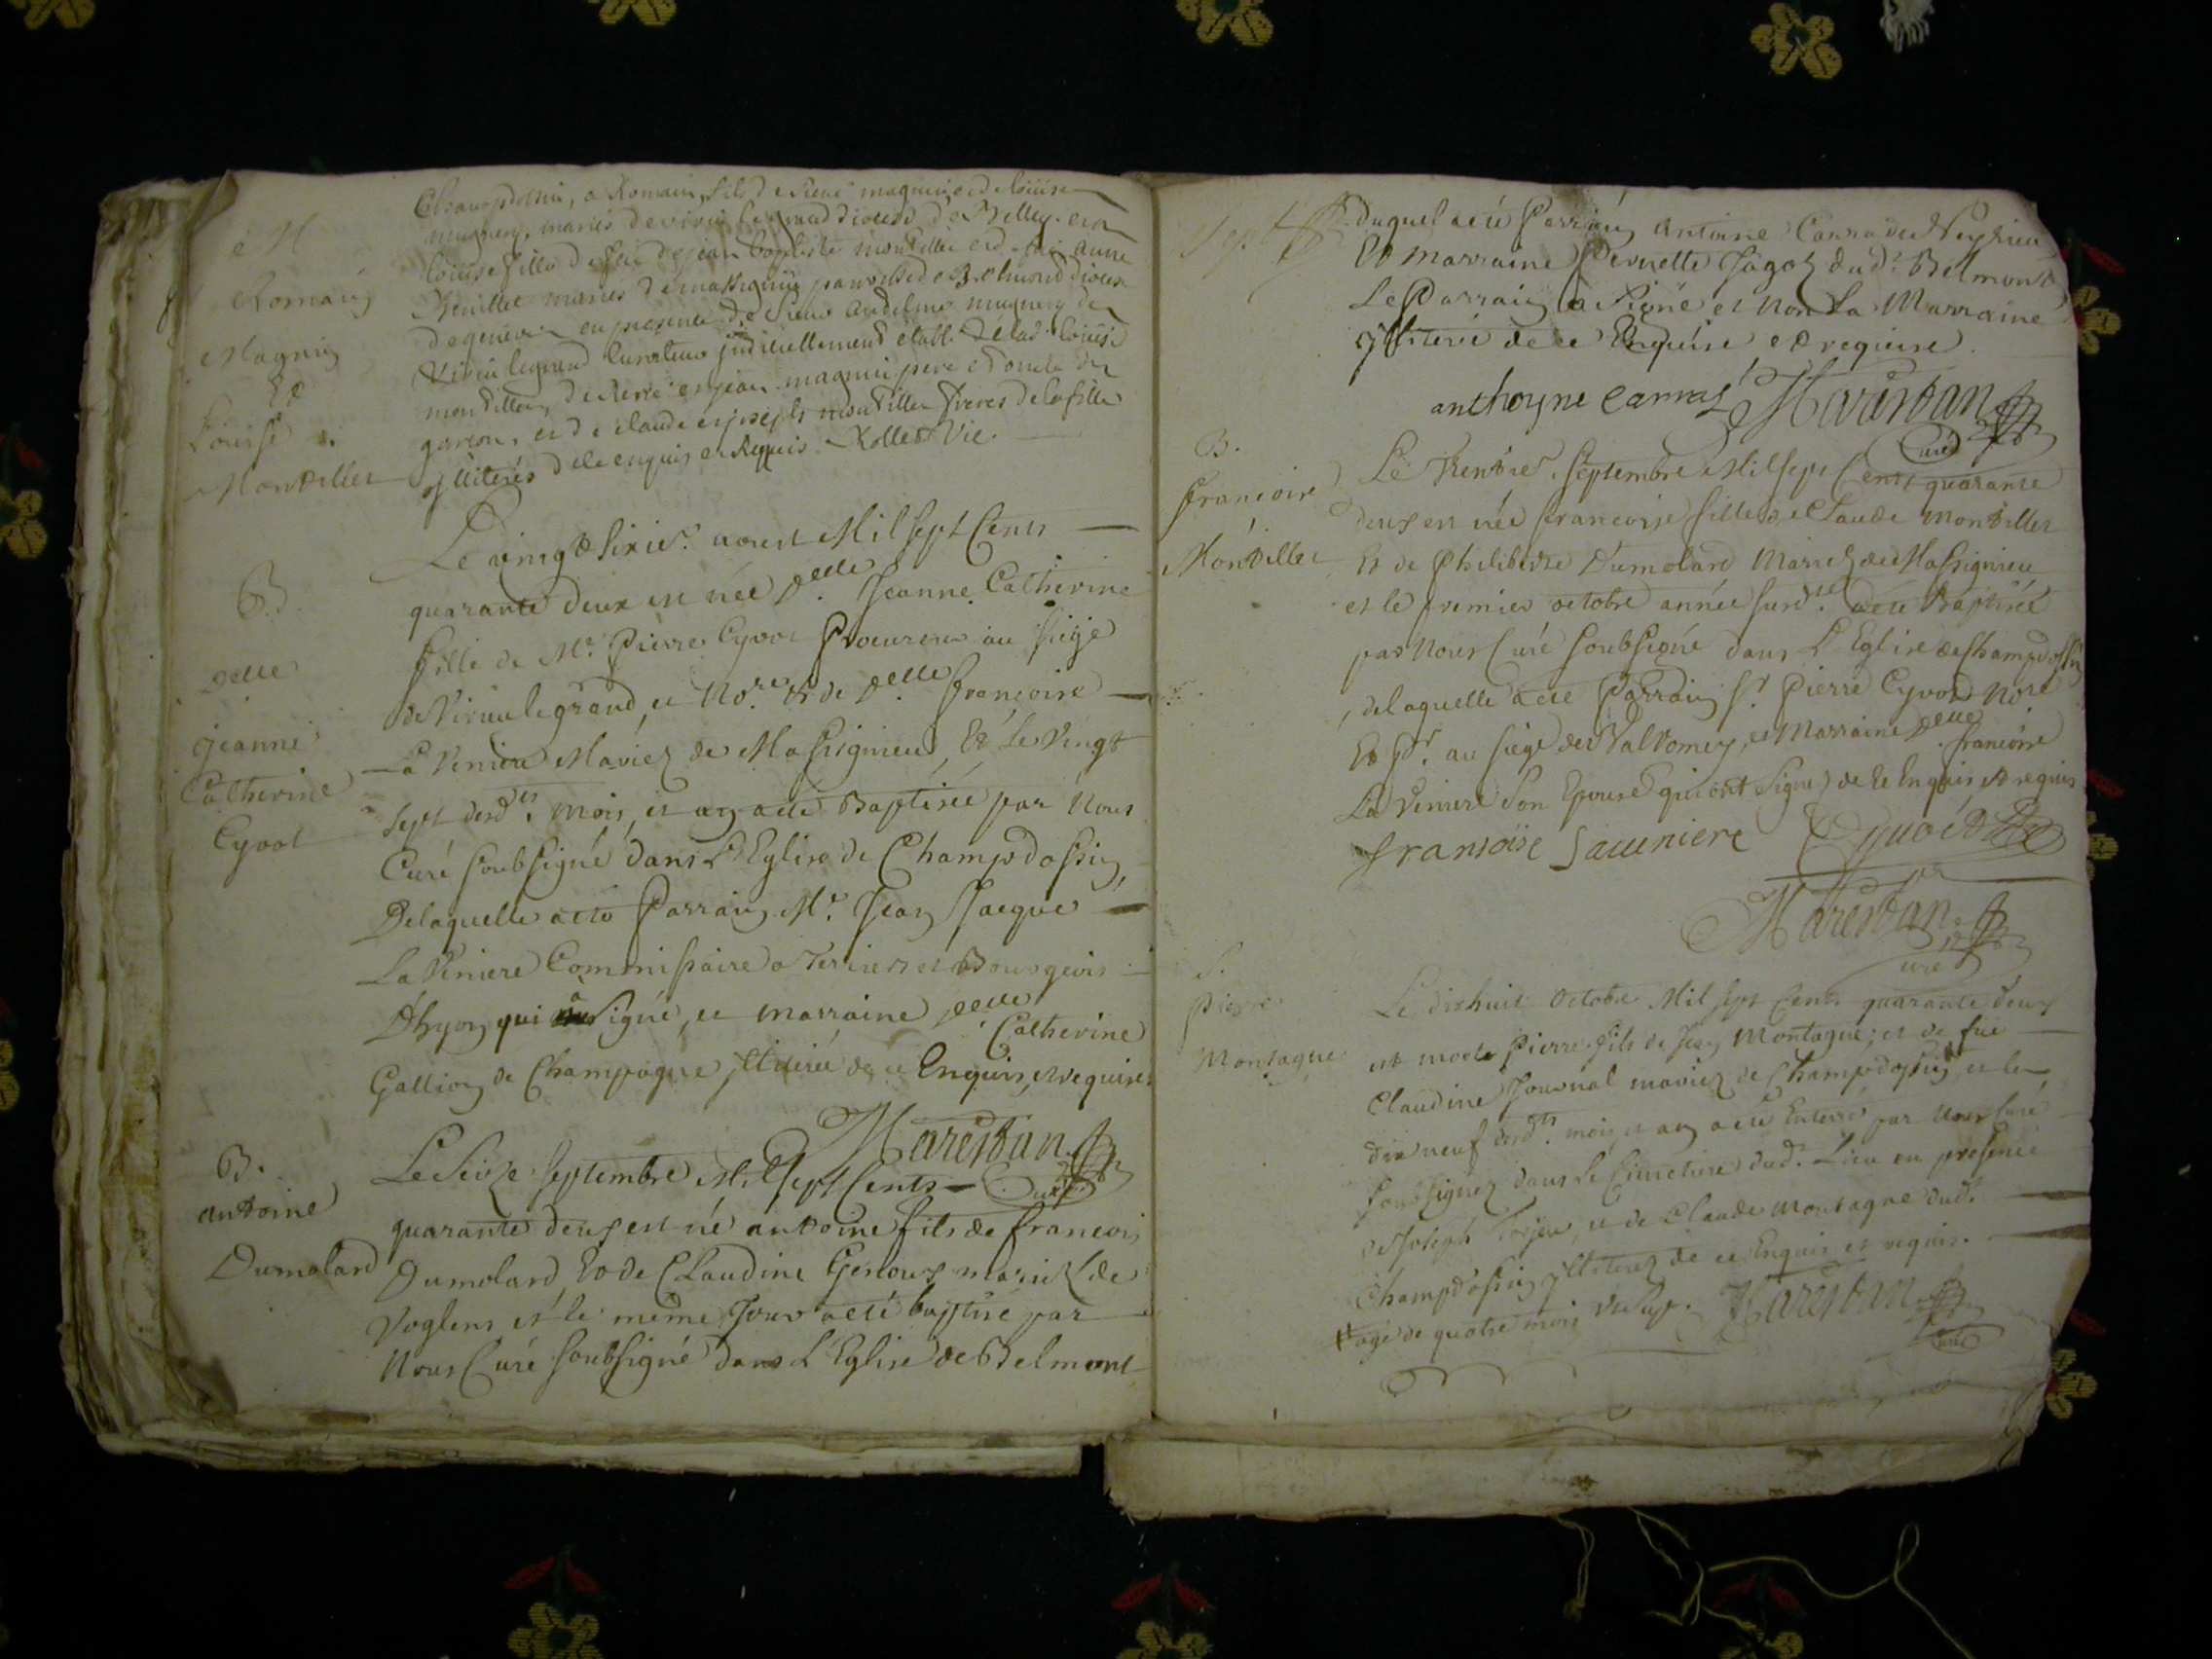 M
Romain
Magnin
Et
Louise
Montillet
Champdossin, a Romain, fils de Pierre magnin et de loüise
mugnery, mariés de virieu le grand diocese de Belley. et a
loüise fille de feu de jean baptiste montillet et de anne
mariés de massignieu paroisse de Belmond diocese
de geneve en presence de Sieur Andelme mugnery de
Virieu legrand Curateur judiciellement établi de lad. loüise
montillet, de Pierre en jean magnin pere et oncle du
garcon, et de claude et joseph montillet freres de la fille
jlliterés de ce enquis et Requis. Rollet Vic.
B.
Delle
jeanne
Catherine
Cyvot
Le vingt sixie. aoust Mil sept Cents
quarante deux est née Delle. Jeanne Catherine
fille de Mr. Pierre Cyvot Procureur au siège
de Virieulegrand, et Nore. et de Delle. francoise
La Veniere Mariez de Massignieu, Et le Vingt
sept desdts. mois, et an a eté Baptisée par Nous
Curé soubsigné dans L'Eglise de Champdossin,
Delaquelle a eté Parrain Mr. Jean Jacque
La Veniere Commissaire a Terriers et Bourgeois
d'hyon qui à signé, et marraine Delle. Catherine
Gallion de Champagne jlliterée de ce Enquise, et requise
Marestan
Curé
B.
antoine
Dumolard
Le Seize septembre Mil sept Cents
quarante deux est né antoine fils de francois
Dumolard, Et de Claudine Genoux mariez de
Voglens et le même Jour a eté baptisé par
Nous Curé soubsigné dans L'Eglise de Belmont
duquel a eté Parrain Antoine Carra de Neyrieu
Et marraine Pernette Jagot dud. Belmont
Le Parrain a signé et non la Marraine
jlliterée de ce Enquise et requise.
anthoyne carraz Marestan
Curé
B.
francoise
Montillet
Le Trente. septembre Mil sept Cents quarante
deux est née francoise fille de Claude Montillet
Et de Philiberte Dumolard Mariez de Massignieu
et le premier octobre année susdte. a eté Baptisée
par Nous Curé soubsigné dans L'Eglise de Champdossin
, delaquelle a eté Parrain Sr. Pierre Cyvot Nore.
Et Pr. au siège de Valromey, et Marraine Delle. francoise
La Veniere son Epouse qui ont signé de ce Enquis et requis
fransoise Laueniere Cyvot
Marestan
Curé
S.
Pierre
Montagne
Le dixhuit Octobre Mil sept Cents quarante deux
est mort Pierre fils de Jean Montagne, et de fue
Claudine Journal mariez de Champdossin, et le
dix neuf desdts. mois et an a eté Enterré par Nous Curé
soubsignez dans le Cimetiere dud. Lieu en presence
de Joseph et de Claude Montagne dudt.
Champdossin jlliterez de ce Enquis et requis.
agé de quatre mois Marestan
Curé